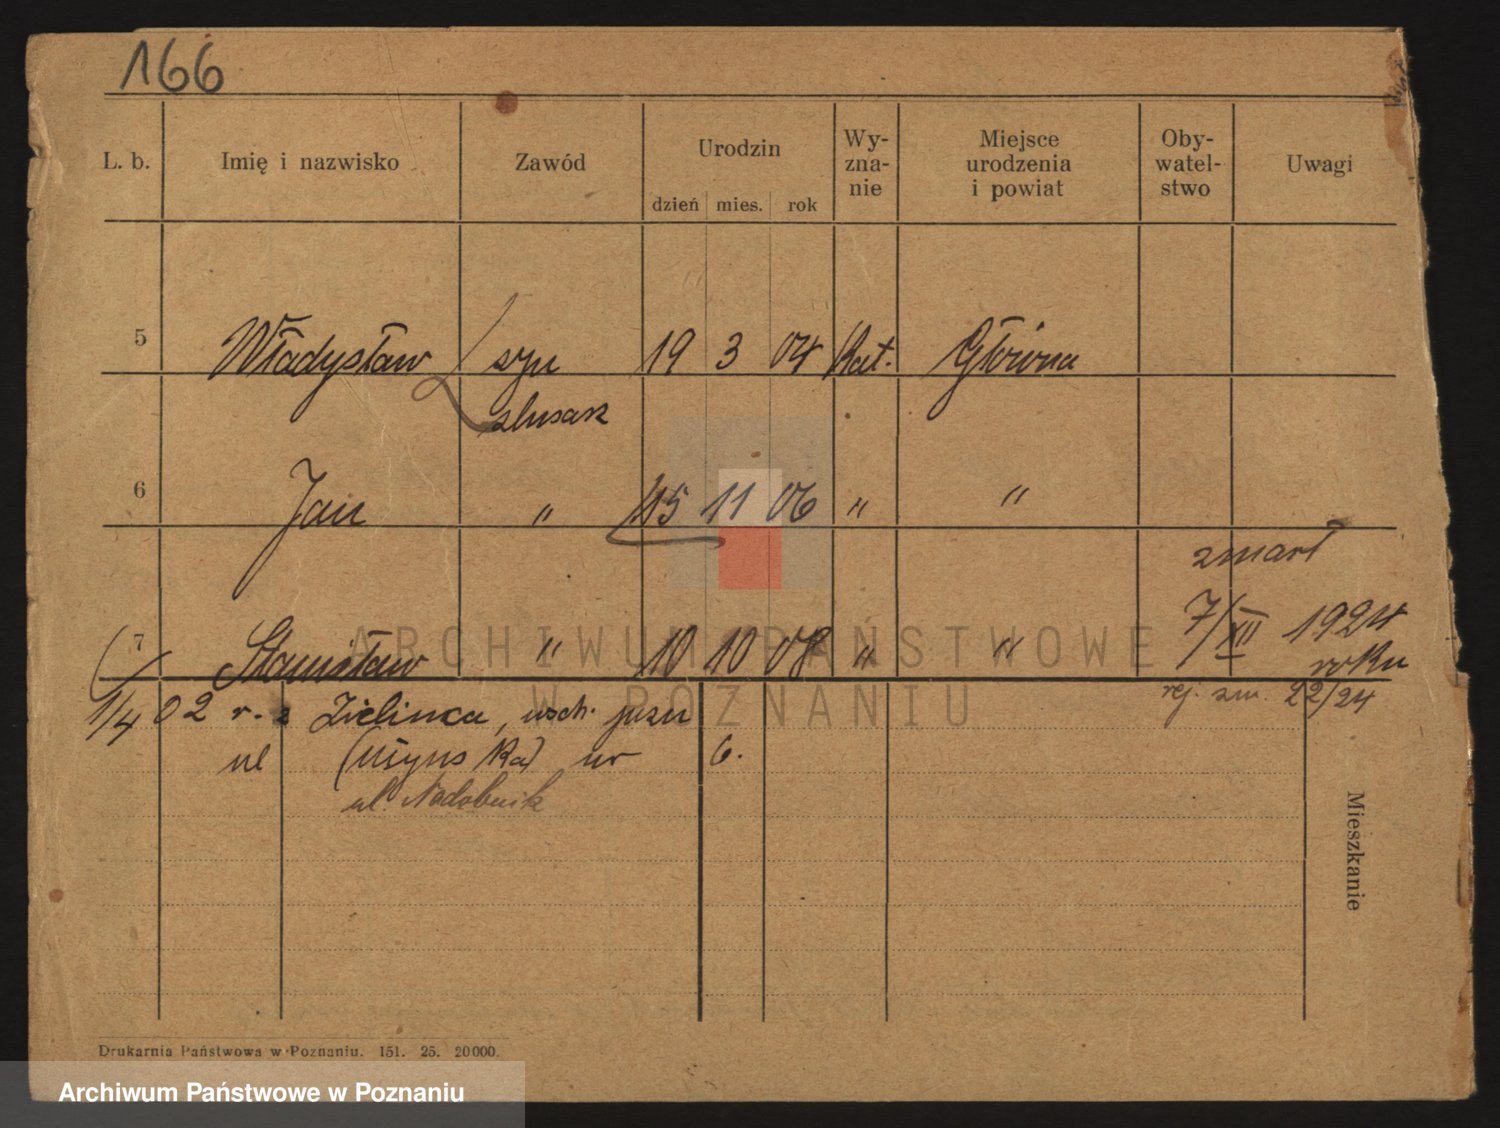 166
L. b. Imię i nazwisko Zawód Urodzin dzień mies. rok Wy-zna-nie Miejsce urodzenia i powiat Oby-watel-stwo Uwagi
5 Władysław syn 19 3 04 Kat. Główna
slusarz
6 Jan " 15 11 06 " "
zmarł
7 Stanisław " 10 10 08 " " 7/XII 1924
roku
rej. zm. 22/24
1/4 02 r. z Zielińca, wsch.
ul 6.
ul. Nadolnik
Mieszkanie
ARCHIWUM PAŃSTWOWE
W POZNANIU
Drukarnia Państwowa w Poznaniu. 151. 25. 20000.
Archiwum Państwowe w Poznaniu